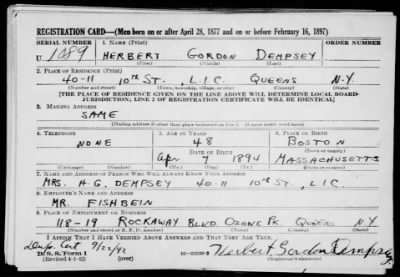 REGISTRATION CARD—(Men born on or after April 28, 1877 and on or before February 16, 1897)
SERIAL NUMBER 1. NAME (Print)
U 1089 HERBERT GORDON DEMPSEY
(First) (Middle) (Last)
2. PLACE OF RESIDENCE (Print)
40-11 10th ST. L.I.C. QUEENS N.Y.
(Number and street) (Town, township, village, or city) (County) (State)
[THE PLACE OF RESIDENCE GIVEN ON THE LINE ABOVE WILL DETERMINE LOCAL BOARD
JURISDICTION; LINE 2 OF REGISTRATION CERTIFICATE WILL BE IDENTICAL]
3. MAILING ADDRESS
SAME
[Mailing address if other than place indicated on line 2. If same insert word same]
4. TELEPHONE 5. AGE IN YEARS 6. PLACE OF BIRTH
NONE 48 BOSTON
DATE OF BIRTH (Town or county)
Apr 7 1894 MASSACHUSETTS
(Exchange) (Number) (Mo.) (Day) (Yr.) (State or country)
7. NAME AND ADDRESS OF PERSON WHO WILL ALWAYS KNOW YOUR ADDRESS
MRS. H.G. DEMPSEY 40-11 10th ST., L.I.C.
8. EMPLOYER'S NAME AND ADDRESS
MR. FISHBEIN
9. PLACE OF EMPLOYMENT OR BUSINESS
118-19 ROCKAWAY BLVD OZONE PK. QUEENS N.Y.
(Number and street or R. F. D. number) (Town) (County) (State)
I AFFIRM THAT I HAVE VERIFIED ABOVE ANSWERS AND THAT THEY ARE TRUE.
D. S. S. Form 1
(Revised 4-1-42) Herbert Gordon Dempsey